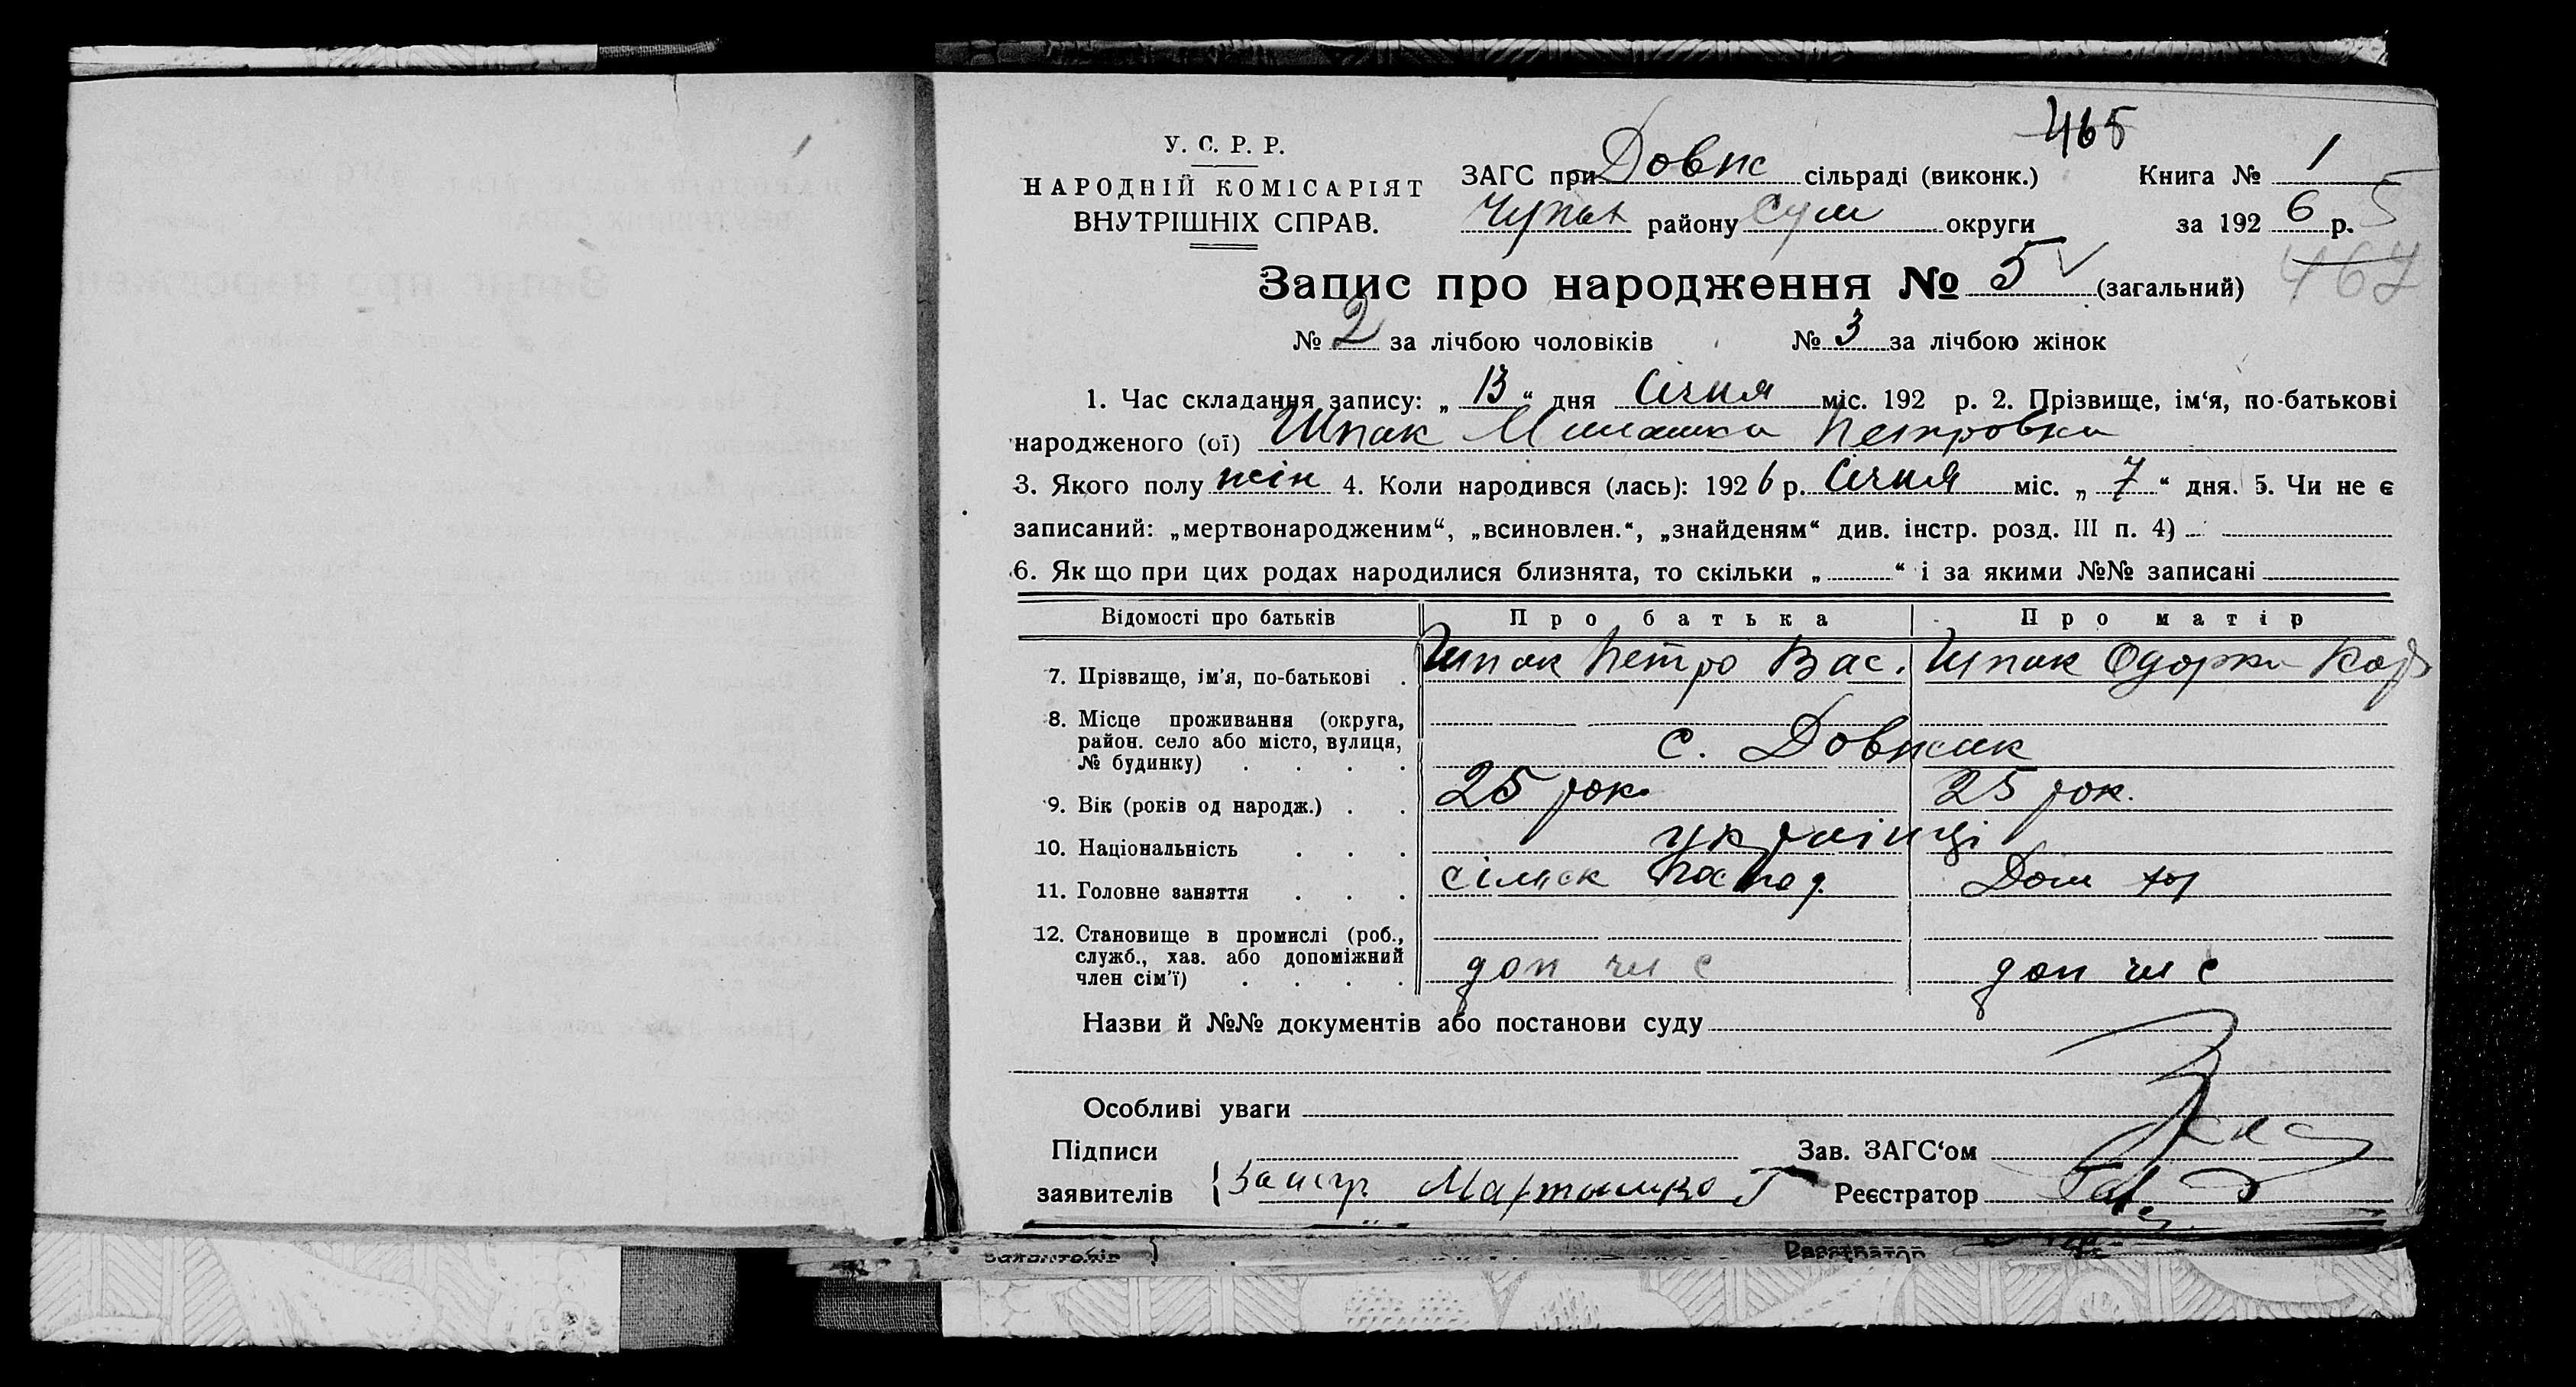 465
У. С. Р. Р.
НАРОДНІЙ КОМІСАРІЯТ
ВНУТРІШНІХ СПРАВ.
ЗАГС при Довж сільраді (виконк.) Книга № 1
району Сум округи за 192 6 р. 5
Запис про народження № 5 (загальний) 467
№ 2 за лічбою чоловіків № 3 за лічбою жінок
1. Час складання запису: „ 13 “ дня Січня міс. 192 р. 2. Прізвище, ім‘я, по-батькові
народженого (ої) Шпак Петровна
3. Якого полу жін 4. Коли народився (лась): 192 6 р. Січня міс. „ 7 “ дня. 5. Чи не є
записаний: „мертвонародженим“, „всиновлен.“, „знайденям“ див. інстр. розд. III п. 4)
6. Як що при цих родах народилися близнята, то скільки „ “ і за якими №№ записані
Відомості про батьків Про батька Про матір
7. Прізвище, ім'я, по-батькові Шпак Петро Вас. Шпак Одарка
8. Місце проживання (округа,
район. село або місто, вулиця,
№ будинку) с. Довжик
9. Вік (років од народж.) 25 рок. 25 рок.
10. Національність українці
11. Головне заняття сільск господ Дом
12. Становище в промислі (роб.,
служб., хаз. або допоміжний
член сім'ї) доп чл с доп чл с
Назви й №№ документів або постанови суду
Особливі уваги
Підписи Зав. ЗАГС‘ом
заявителів Реєстратор
заявителів Реєстратор